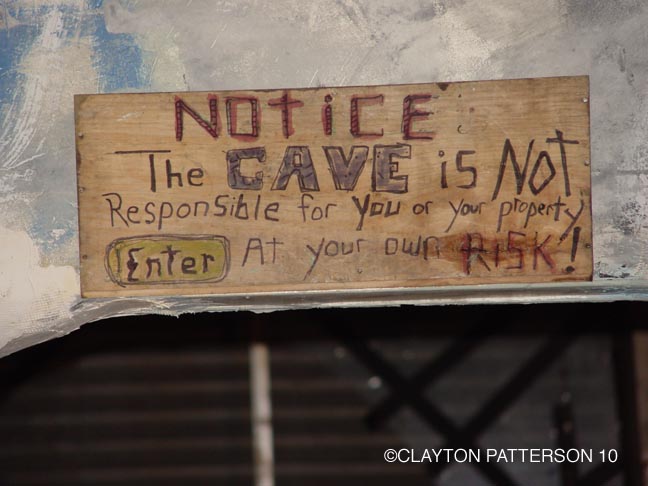 NOtiCE
The CAVE is NOt
Responsible for you or your property
Enter At your own RISK!
©CLAYTON PATTERSON 10